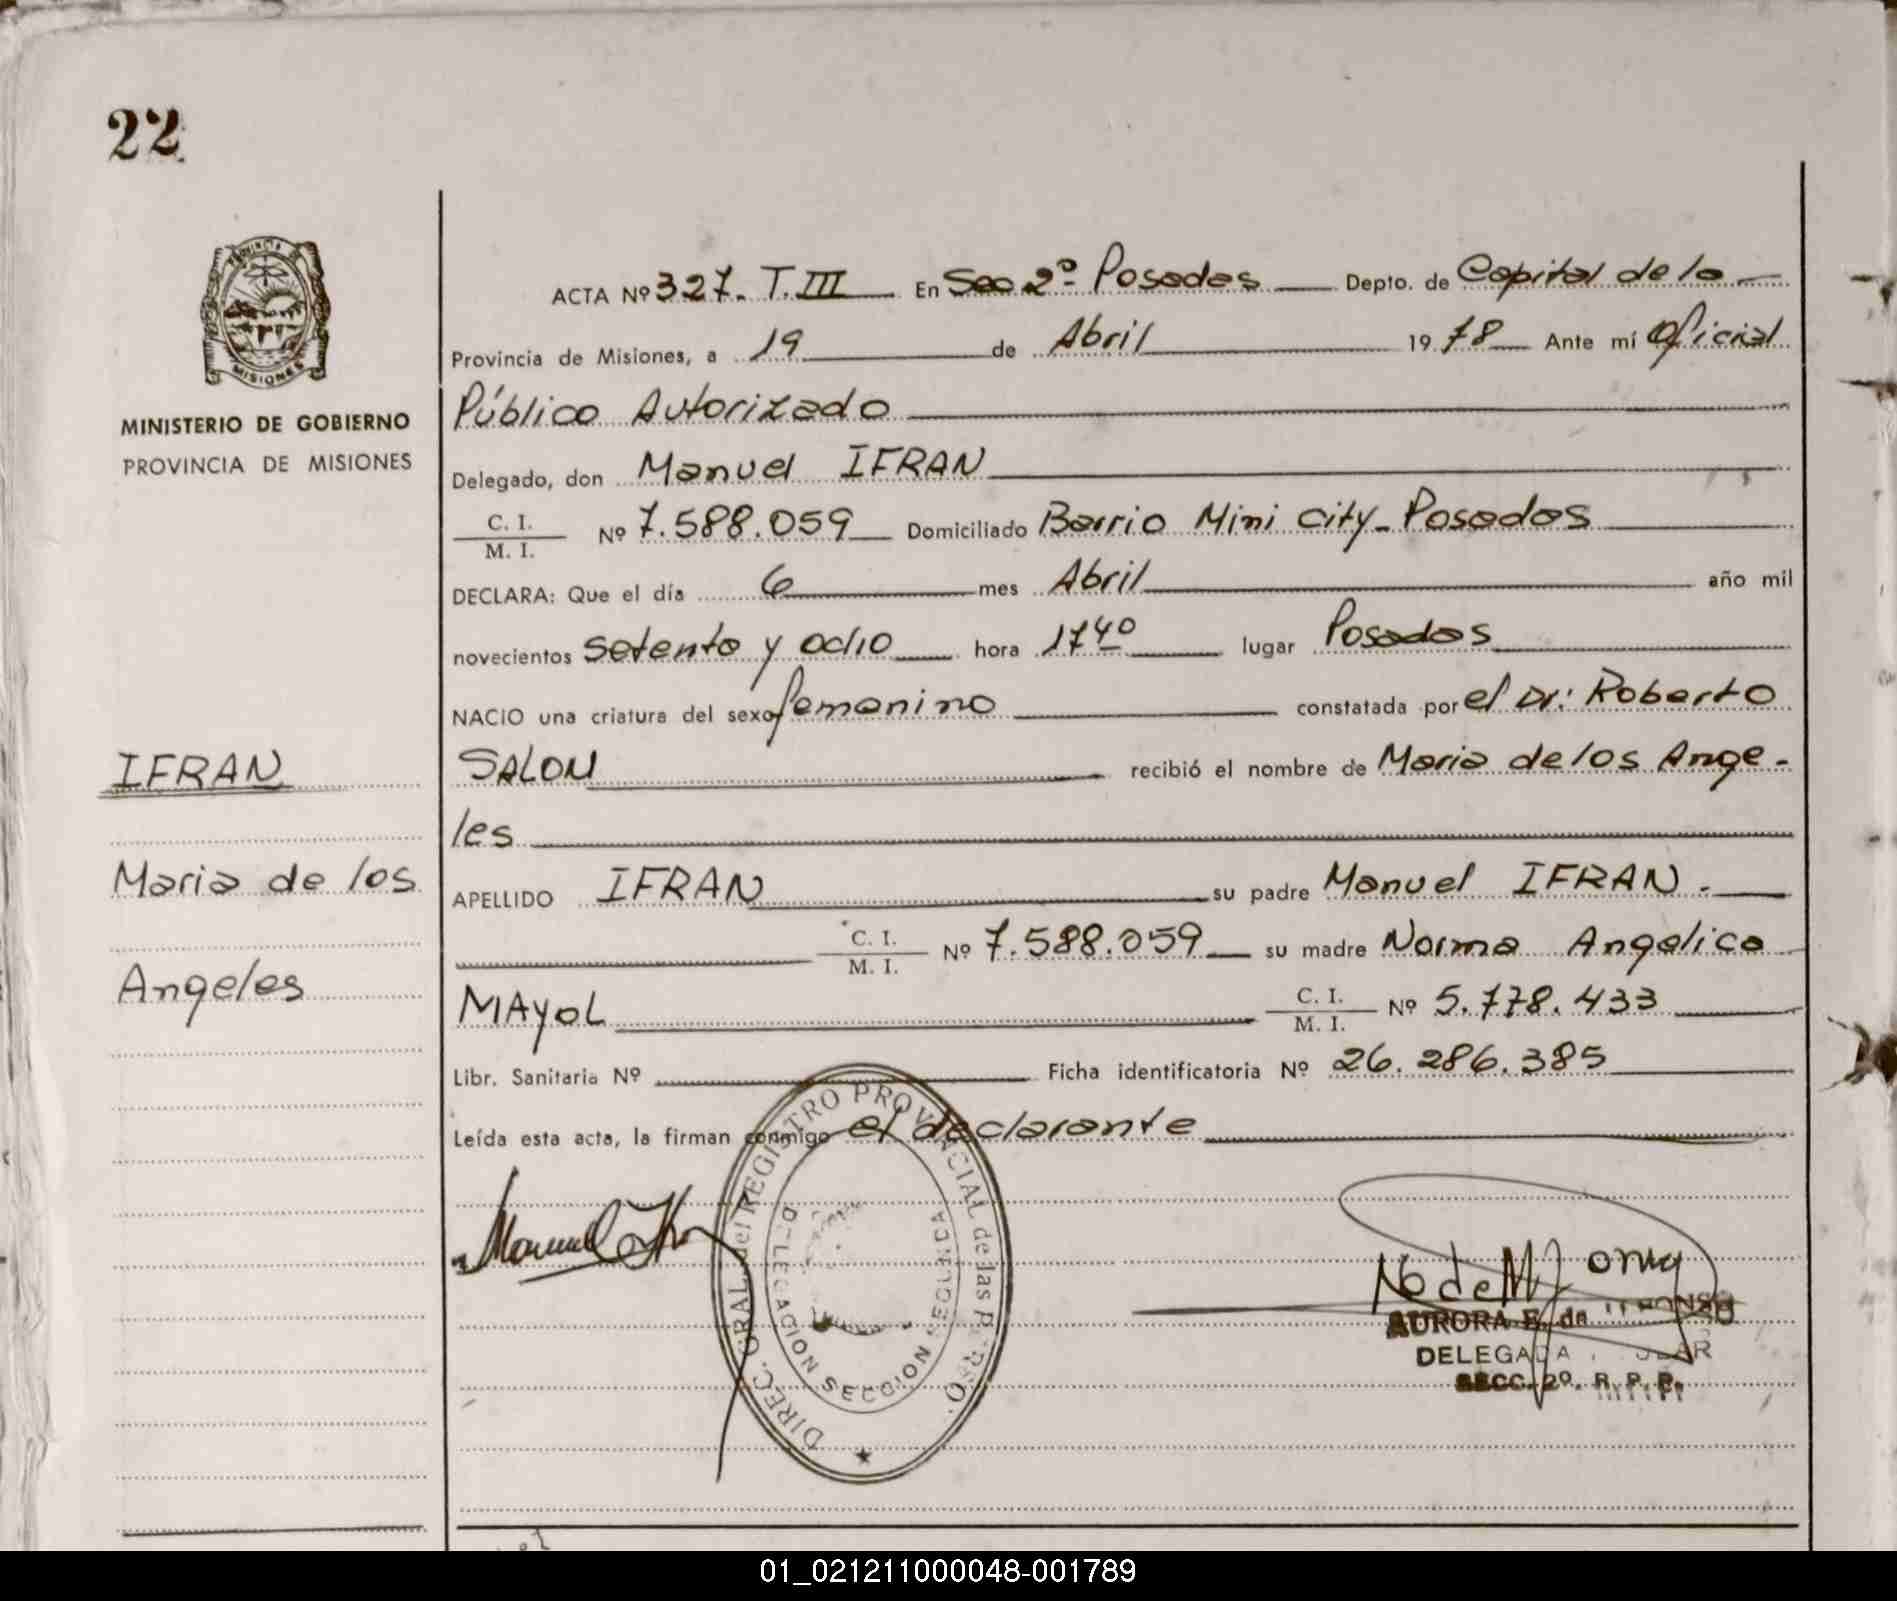 22
PROVINCIA DE
MISIONES
MINISTERIO DE GOBIERNO
PROVINCIA DE MISIONES
IFRAN
Maria de los
Angeles
ACTA Nº 327. T. III En Sec 2º Posadas Depto. de Capital de la
Provincia de Misiones, a 19 de Abril 1978 Ante mí Oficial
Público Autorizado
Delegado, don Manuel IFRAN
C. I.
M. I. Nº 7.588.059 Domiciliado Barrio Mini City - Posadas
DECLARA: Que el día 6 mes Abril año mil
novecientos setenta y ocho hora 17 40 lugar Posadas
NACIO una criatura del sexo femenino constatada por el Dr: Roberto
SALOM recibió el nombre de Maria de los Ange-
les
APELLIDO IFRAN su padre Manuel IFRAN.
C. I.
M. I. Nº 7.588.059 su madre Norma Angelica
MAYOL C. I.
M. I. Nº 5.778.433
Libr. Sanitaria Nº Ficha identificatoria Nº 26.286.385
Leída esta acta, la firman conmigo el declarante
DIREC. GRAL. del REGISTRO PROVINCIAL de las PERSO.
DELEGACION SECCION SEGUNDA
AURORA E. de
DELEGADA
SECC. 2º. R. P. P.
01_021211000048-001789